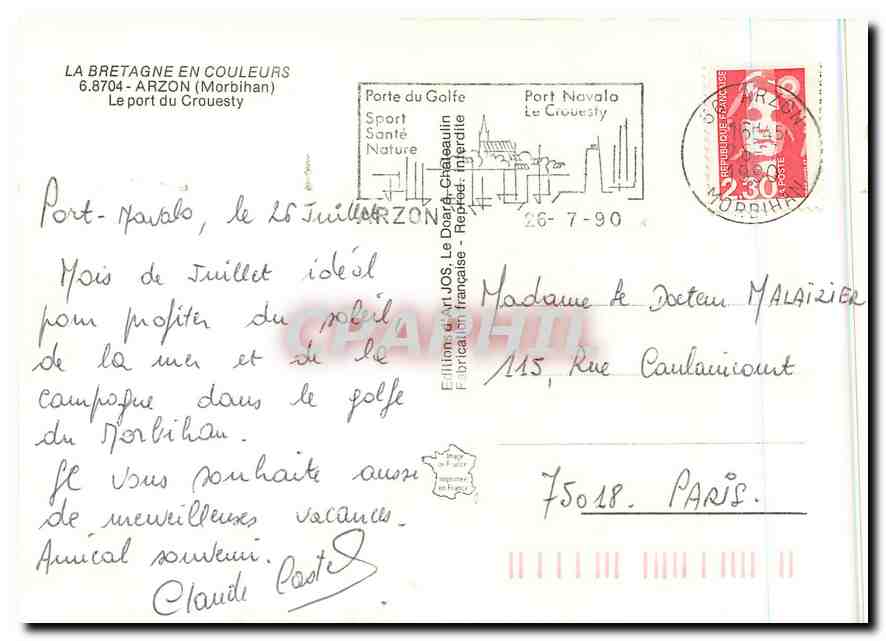 LA BRETAGNE EN COULEURS
6.8704 - ARZON (Morbihan)
Le port du Crouesty
Porte du Golfe
Sport
Santé
Nature
Port Navalo
Le Crouesty
ARZON
26- 7-90
56 ARZON
16H45
1990
MORBIHAN
REPUBLIQUE FRANÇAISE
2,30
LA POSTE
Port-Navalo, le 26 Juillet
Mois de Juillet idéal
pour profiter du soleil,
de la mer et de la
campagne dans le golfe
du Morbihan.
Je vous souhaite aussi
de merveilleuses vacances.
Amical souvenir.
Claude Castel
Editions d'Art JOS, Le Doaré, Chateaulin
Fabrication française - Reprod. interdite
CPAPHIL
Image
de France
Imprimée
en France
Madame le Docteur MALAIZIER
115, Rue Caulaincourt
75018. PARIS.